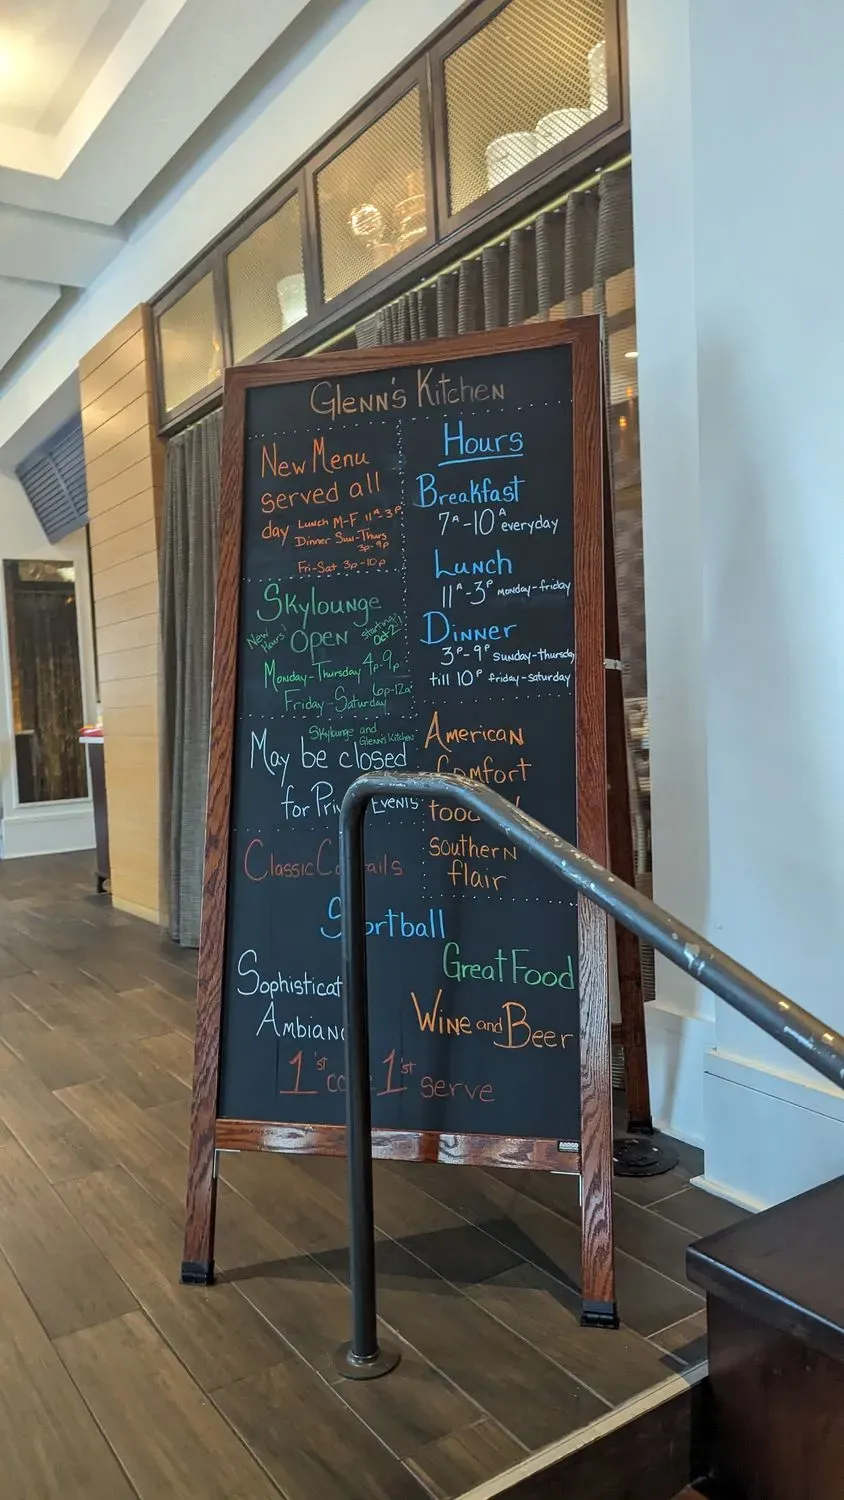 Glenn's Kitchen
New Menu
served all
day Lunch M-F 11A-3P
Dinner Sun-Thurs
3p-9p
Fri-Sat 3p-10p
Hours
Breakfast
7A-10A everyday
Lunch
11A-3P monday-friday
Dinner
3P-9P sunday-thursday
till 10P friday-saturday
Skylounge
New Hours!
OPEN
starting Oct 2!!
Monday-Thursday 4p-9p
Friday-Saturday 6p-12a
Skylounge and
Glenn's Kitchen
May be closed
for Events
American
food
southern
flair
Classic
Great Food
Wine and Beer
1'st 1'st serve
AARCO